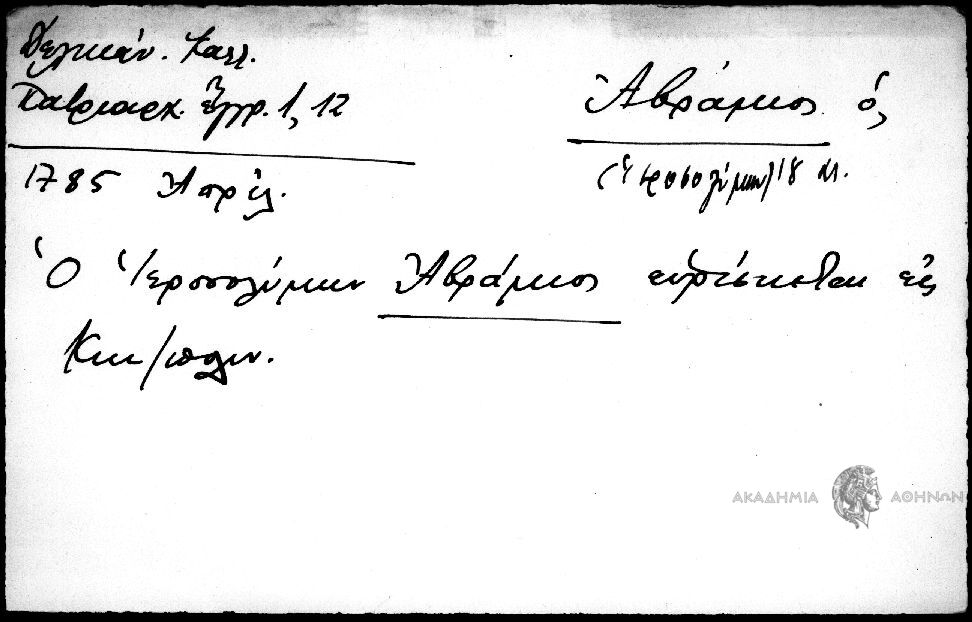 Δελικάν. Καλλ.
Πατριαρχ. ἔγγρ. 1, 12
Ἀβράμιος ὁ
(Ἱεροσολύμων) 18 αι.
1785 Ἀπρίλ.
Ὁ Ἱεροσολύμων Ἀβράμιος εὑρίσκεται εἰς
Κων/πολιν.
ΑΚΑΔΗΜΙΑ ΑΘΗΝΩΝ